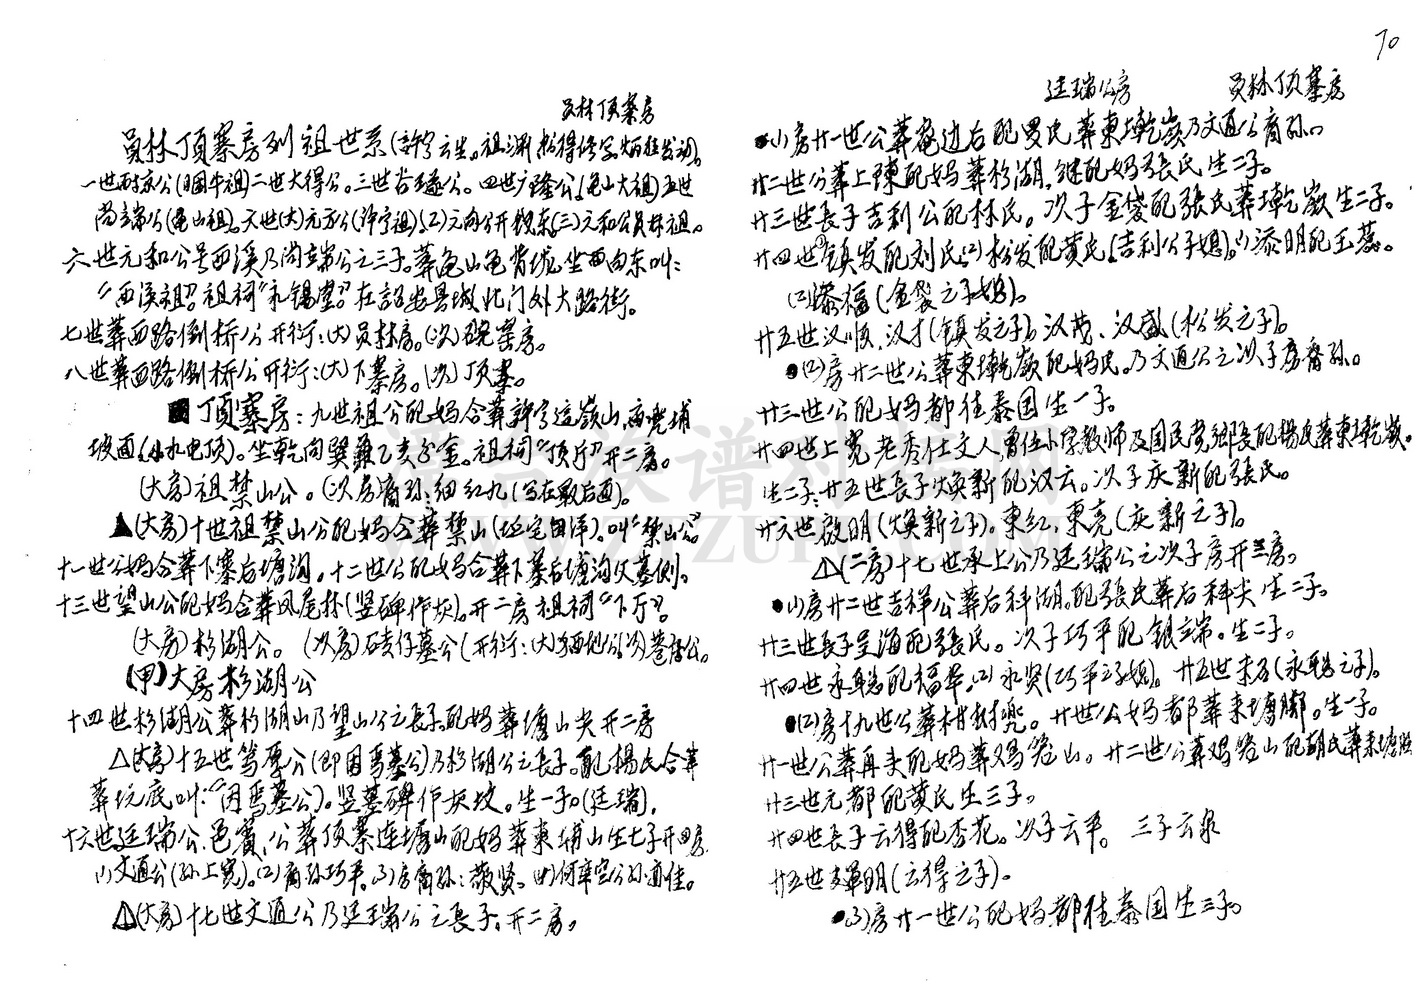 70
员林顶寨房
员林顶寨房列祖世系
一世耐京公 二世大得公。三世 公。四世广隆公(龟山大祖)五世
尚端公(龟山祖)。六世(大)元 公(许宁祖)(2)元向公开 东(三)元和公员林祖。
六世元和公号西溪乃尚端公之三子。葬龟山龟背坑坐西向东叫:
“西溪祖”。祖祠“礼锡堂”。在詔安县城北门外大路街。
七世葬西路倒桥公开衍:(大)员林房。(次)碗窑房。
八世葬西路倒桥公开衍:(大)下寨房。(次)顶寨。
■顶寨房:九世祖公配妈合葬許宁 嶺山
坡面(小水电顶)。坐乾向巽 。祖祠“顶厅”开二房。
(大房)祖禁山公。(次房裔孙:细红九(写在最后面)。
▲(大房)十世祖禁山公配妈合葬禁山 。叫“禁山公”
十一世公妈合葬下寨后塘沟。十二世公配妈合葬下寨后塘沟父墓侧。
十三世望山公配妈合葬凤尾林(竖碑作灰)。开二房祖祠“下厅”。
(大房)杉湖公。(次房)碃仔墓公(开衍:(大) (次)
(甲)大房杉湖公
十四世杉湖公葬杉湖山乃望山公之長子。配妈葬塘山尖开二房
△(大房)十五世笃厚公(即因焉墓公)乃杉湖公之長子。配楊氏合葬
葬坑底叫:“因焉墓公)。竖墓碑作灰坟。生一子。(廷瑞)。
十六世廷瑞公。邑賓,公葬顶寨连塘山配妈葬東埔山生七子开四房
(1)文通公(孙上宽)。(2)裔孙巧平。(3)房裔孙:敬贤。(4)何 公孙亦佳。
△(大房)十七世文通公乃廷瑞公之長子。开二房。
廷瑞公房 员林顶寨房
●(1)房廿一世公葬庵边后配 氏葬東 乾嶺乃文通公裔孙。
廿二世公葬上陳配妈葬杉湖,継配妈張氏生二子。
廿三世長子吉利公配林氏。次子金袋配張氏葬 乾嶺生二子。
廿四世(1)镇发配刘氏(2)松发配黄氏(吉利公子媳)。(1)添明配王蕊。
(2)添福(金袋之子媳)。
廿五世汉顺、汉才(镇发之子)。汉茂、汉盛(松发之子)。
●(2)房廿二世公葬東 乾嶺配妈氏。乃文通公之次子房裔孙。
廿三世公配妈都住泰国生一子。
廿四世上宽老秀仕文人,曾任小学教师及国民党鄉長配楊氏葬東 乾嶺。
生二子。廿五世長子焕新配汉云。次子灰新配張氏。
廿六世啟明(焕新之子)。東红,東亮(灰新之子)。
△(二房)十七世承上公乃廷瑞公之次子房开三房。
●(1)房廿二世吉祥公葬后科湖。配張氏葬后科尖生二子。
廿三世長子呈海配張氏。次子巧平配银端。生二子。
廿四世永聪配福华。(2)永贤(巧平子媳)。廿五世末名(永聪之子)。
●(2)房十九世公葬柑树兜。廿世公妈都葬東塘脚。生一子。
廿一世公葬再夫配妈葬鸡笼山。廿二世公葬鸡笼山配胡氏葬東塘
廿三世元都配黄氏生三子。
廿四世長子云得配杏花。次子云平。三子云泉
廿五世 明(云得之子)。
●(3)房廿一世公配妈都住泰国生三子。